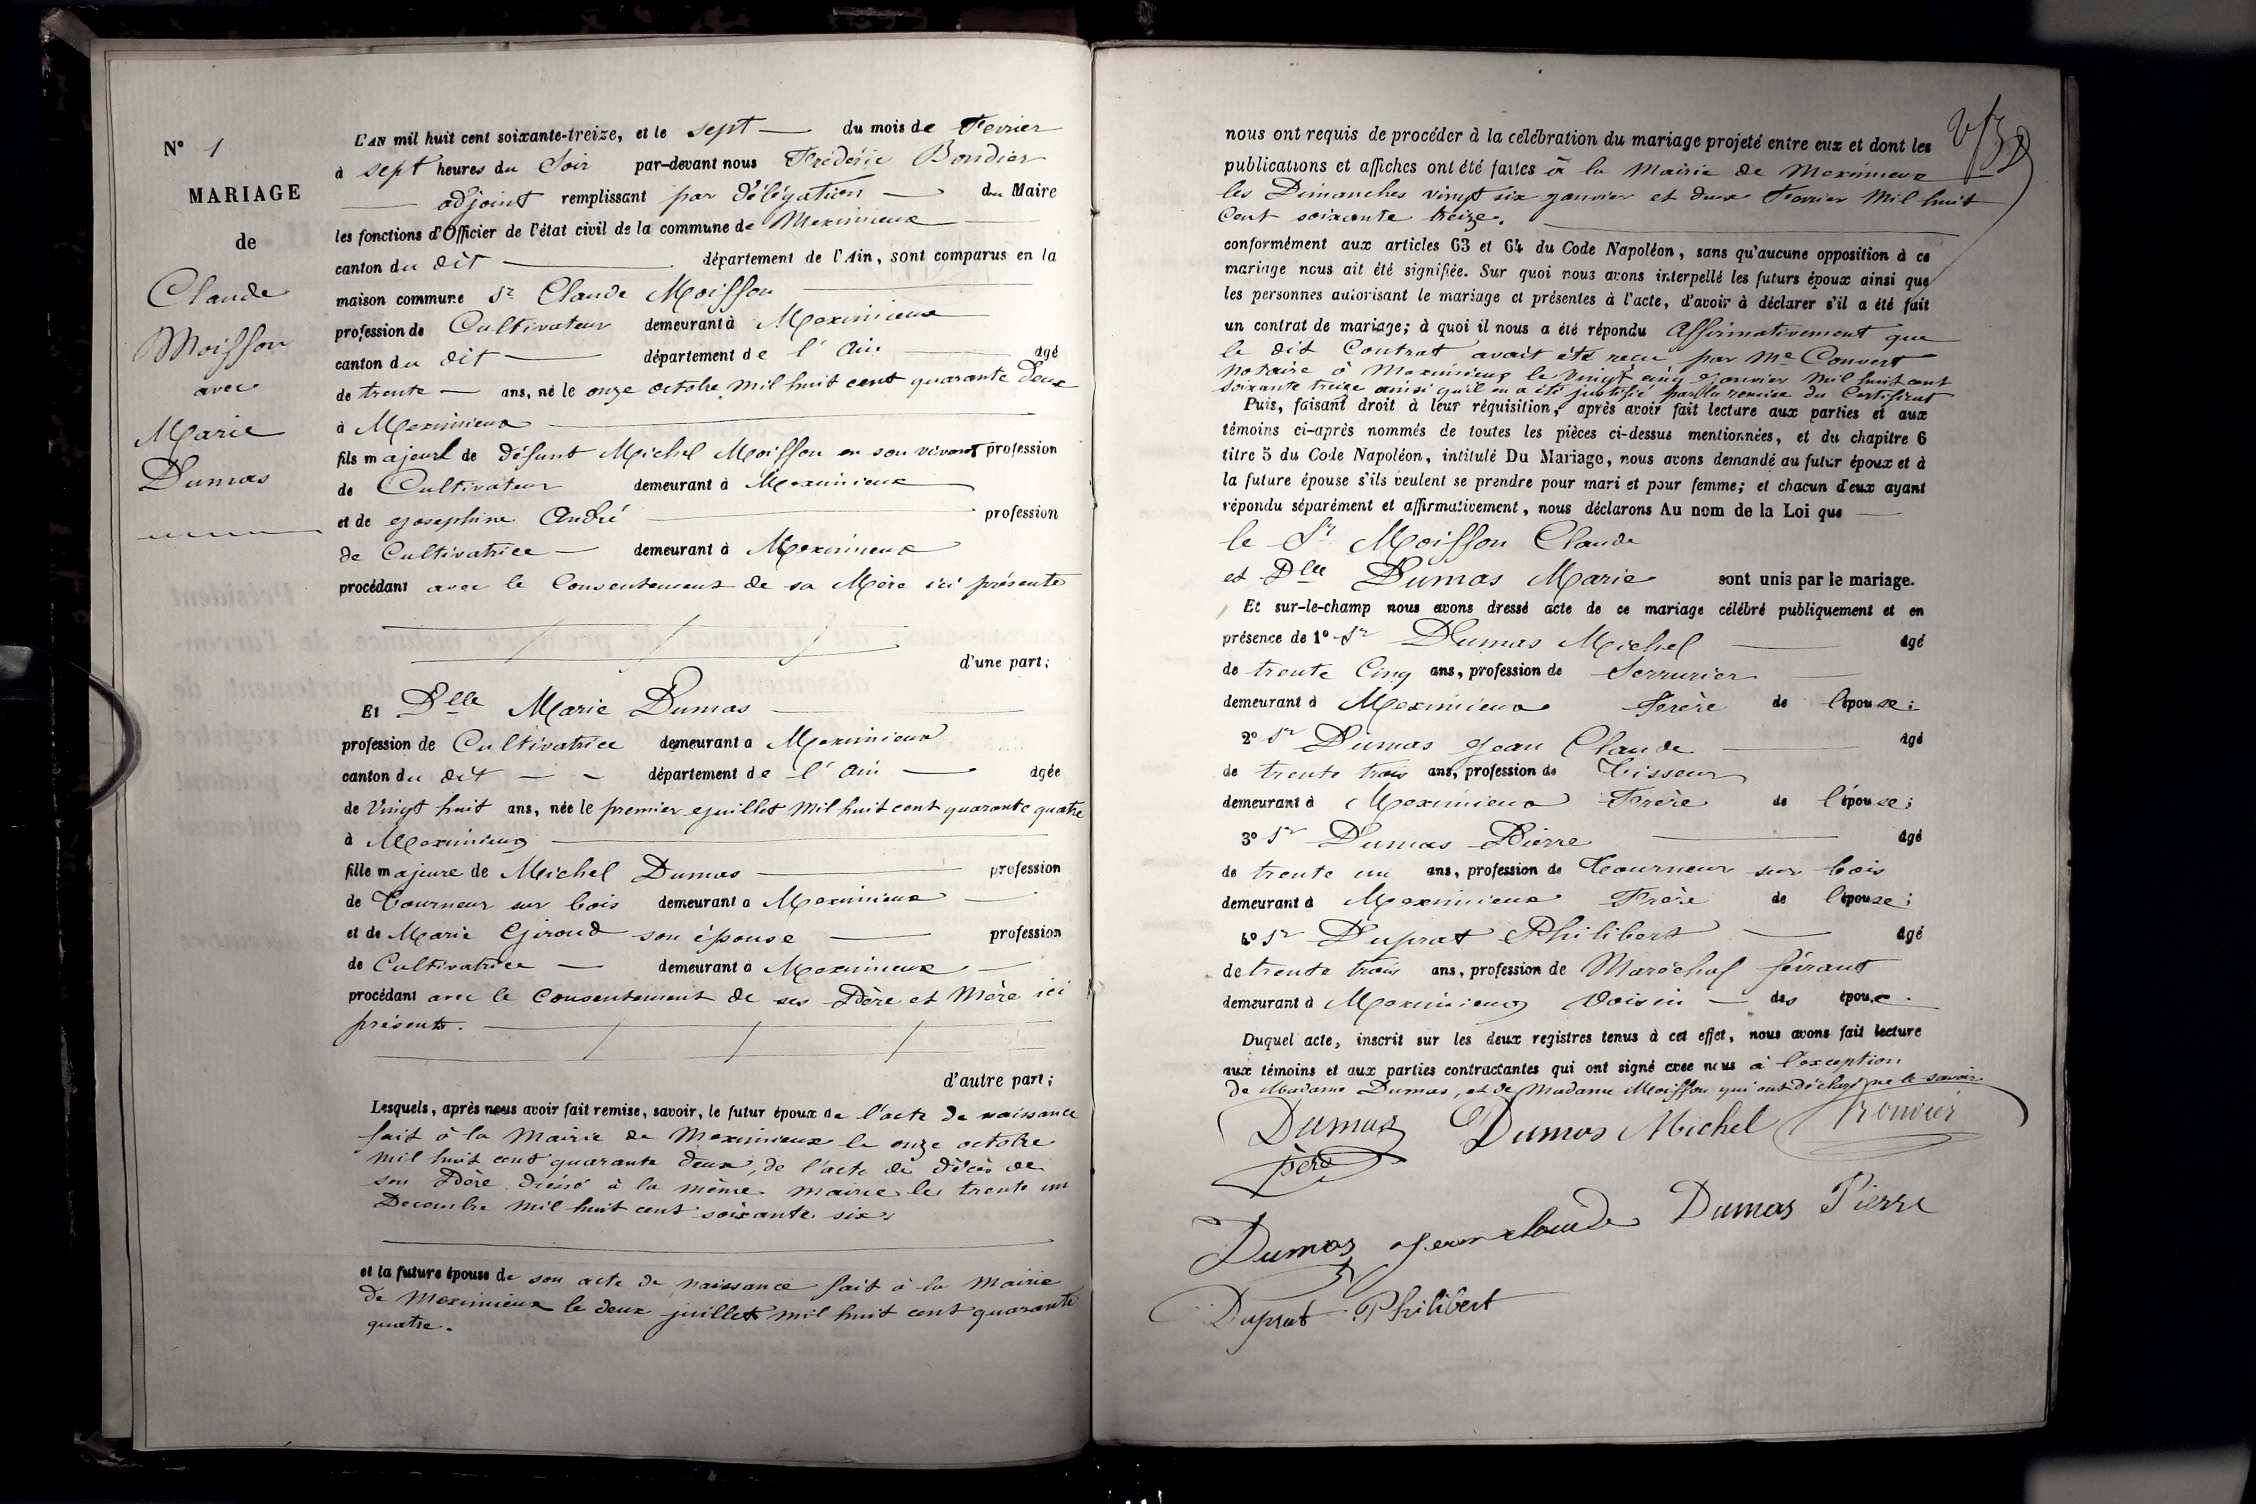 N° 1
MARIAGE
de
Claude
Moisson
avec
Marie
Dumas
L'AN mil huit cent soixante-treize, et le sept du mois de Fevrier
à sept heures du Soir par-devant nous Frédéric
adjoint remplissant par délégation du Maire
les fonctions d'Officier de l'état civil de la commune de Meximieux
canton du dit département de l'Ain, sont comparus en la
maison commune Sr Claude Moisson
profession de Cultivateur demeurant à Meximieux
canton du dit département de l'Ain agé
de trente ans, né le onze octobre mil huit cent quarante deux
à Meximieux
fils majeur de défunt Michel Moisson en son vivant profession
de Cultivateur demeurant à Meximieux
et de Josephine André profession
de Cultivatrice demeurant à Meximieux
procédant avec le Consentement de sa Mère ici présente
d'une part;
Et Dlle Marie Dumas
profession de Cultivatrice demeurant a Meximieux
canton du dit département de l'Ain agée
de Vingt huit ans, née le premier juillet mil huit cent quarante quatre
à Meximieux
fille majeure de Michel Dumas profession
de Tourneur sur bois demeurant a Meximieux
et de Marie Giroud son épouse profession
de Cultivatrice demeurant a Meximieux
procédant avec le Consentement de ses Père et Mère ici
présents.
d'autre part;
Lesquels, après nous avoir fait remise, savoir, le futur époux de l'acte de naissance
fait à la Mairie de Meximieux le onze octobre
mil huit cent quarante deux, de l'acte de décès de
son Père dressé à la même mairie le trente un
Decembre mil huit cent soixante six,
et la future épouse de son acte de naissance fait à la Mairie
de Meximieux le deux juillet mil huit cent quarante
quatre.
nous ont requis de procéder à la célébration du mariage projeté entre eux et dont les
publications et affiches ont été faites à la Mairie de Meximieux
les Dimanches vingt six janvier et deux Fevrier mil huit
Cent soixante treize.
conformément aux articles 63 et 64 du Code Napoléon, sans qu'aucune opposition à ce
mariage nous ait été signifiée. Sur quoi nous avons interpellé les futurs époux ainsi que
les personnes autorisant le mariage et présentes à l'acte, d'avoir à déclarer s'il a été fait
un contrat de mariage; à quoi il nous a été répondu Affirmativement que
le dit Contrat avait été reçu par Me Convert
notaire à Meximieux le Vingt cinq janvier mil huit cent
soixante treize ainsi qu'il en a été justifié par la remise du Certificat
Puis, faisant droit à leur réquisition, après avoir fait lecture aux parties et aux
témoins ci-après nommés de toutes les pièces ci-dessus mentionnées, et du chapitre 6
titre 5 du Code Napoléon, intitulé Du Mariage, nous avons demandé au futur époux et à
la future épouse s'ils veulent se prendre pour mari et pour femme; et chacun d'eux ayant
répondu séparément et affirmativement, nous déclarons Au nom de la Loi que
le Sr Moisson Claude
et Dlle Dumas Marie sont unis par le mariage.
Et sur-le-champ nous avons dressé acte de ce mariage célébré publiquement et en
présence de 1° Sr Dumas Michel agé
de trente Cinq ans, profession de Serrurier
demeurant à Meximieux Frère de l'épouse;
2° Sr Dumas Jean Claude agé
de trente trois ans, profession de Tisseur
demeurant à Meximieux Frère de l'épouse;
3° Sr Dumas Pierre agé
de trente un ans, profession de Tourneur sur bois
demeurant à Meximieux Frère de l'épouse;
4° Sr Duprat Philibert agé
de trente trois ans, profession de Maréchal férrant
demeurant à Meximieux Voisin des époux.
Duquel acte, inscrit sur les deux registres tenus à cet effet, nous avons fait lecture
aux témoins et aux parties contractantes qui ont signé avec nous à l'exception
de Madame Dumas, et de Madame Moisson qui ont déclaré ne le savoir
Dumas Dumas Michel
père
Dumas Jean claude Dumas Pierre
Duprat Philibert